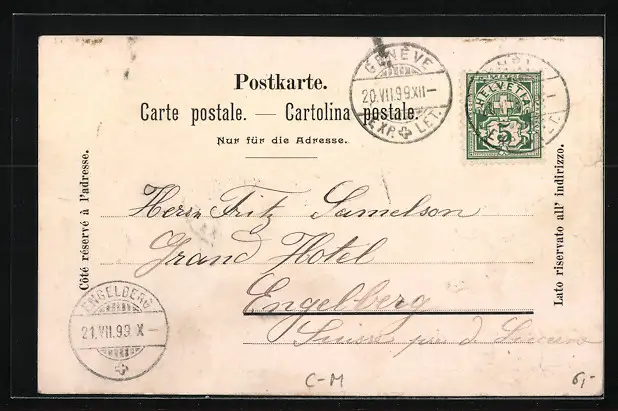 Postkarte.
Carte postale. — Cartolina postale.
Nur für die Adresse.
GENÈVE
20.VII.99.XII—
EXP. LET.
HELVETIA
5
Côté réservé à l'adresse.
Lato riservato all' indirizzo.
Herrn Fritz Samelson
Grand Hotel
Engelberg
Suisse
ENGELBERG
21.VII.99.X—
C-M
6,-